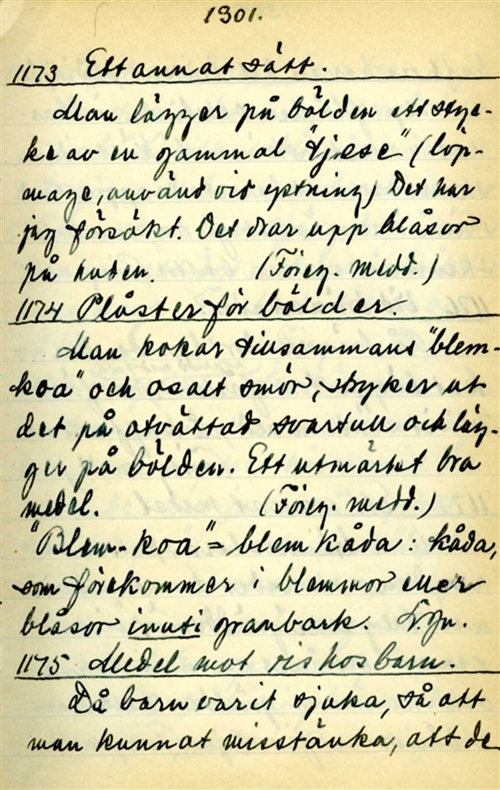 1901.
1173 Ett annat sätt.
Man lägger på bölden ett styc-
ke av en gammal "tjese" (löp-
mage, använd vid ystning) Det har
jag försökt. Det drar upp blåsor
på huden. (Föreg. medd.)
1174 Plåster för bölder.
Man kokar tillsammans "blem-
koa" och osalt smör, stryker ut
det på otvättad svartull och läg-
ger på bölden. Ett utmärkt bra
medel. (Föreg. medd.)
"Blem-koa" = blemkåda: kåda,
som förekommer i blemmor eller
blåsor inuti granbark.
1175 Medel mot ris hos barn.
Då barn varit sjuka, så att
man kunnat misstänka, att de